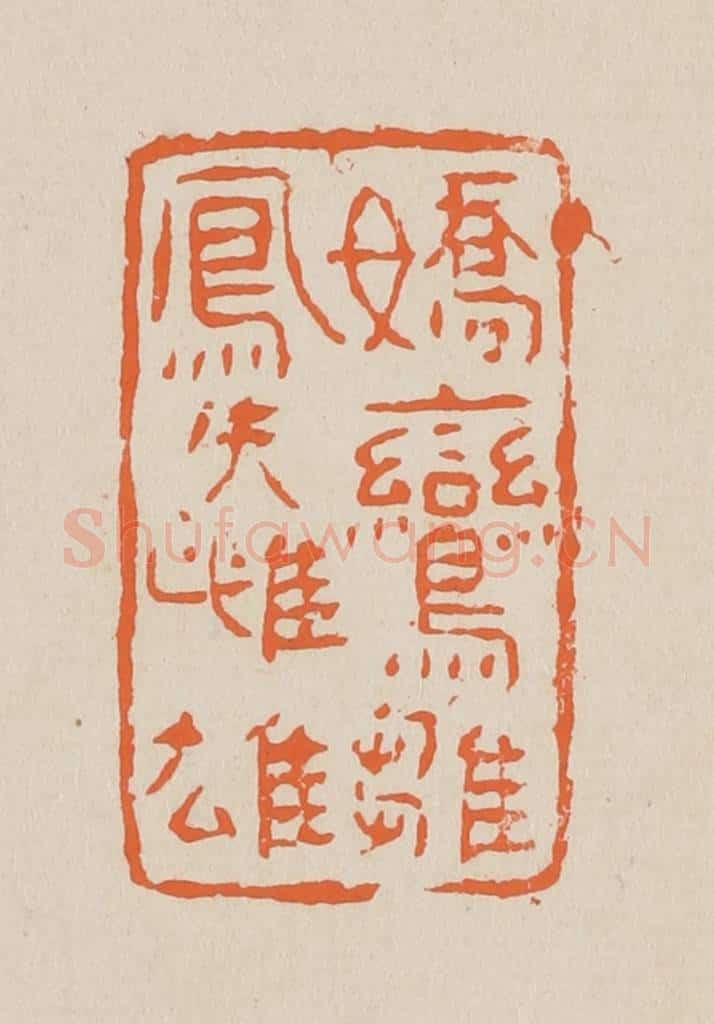 嬌鸞雛
鳳失雌雄
Shufawang.CN